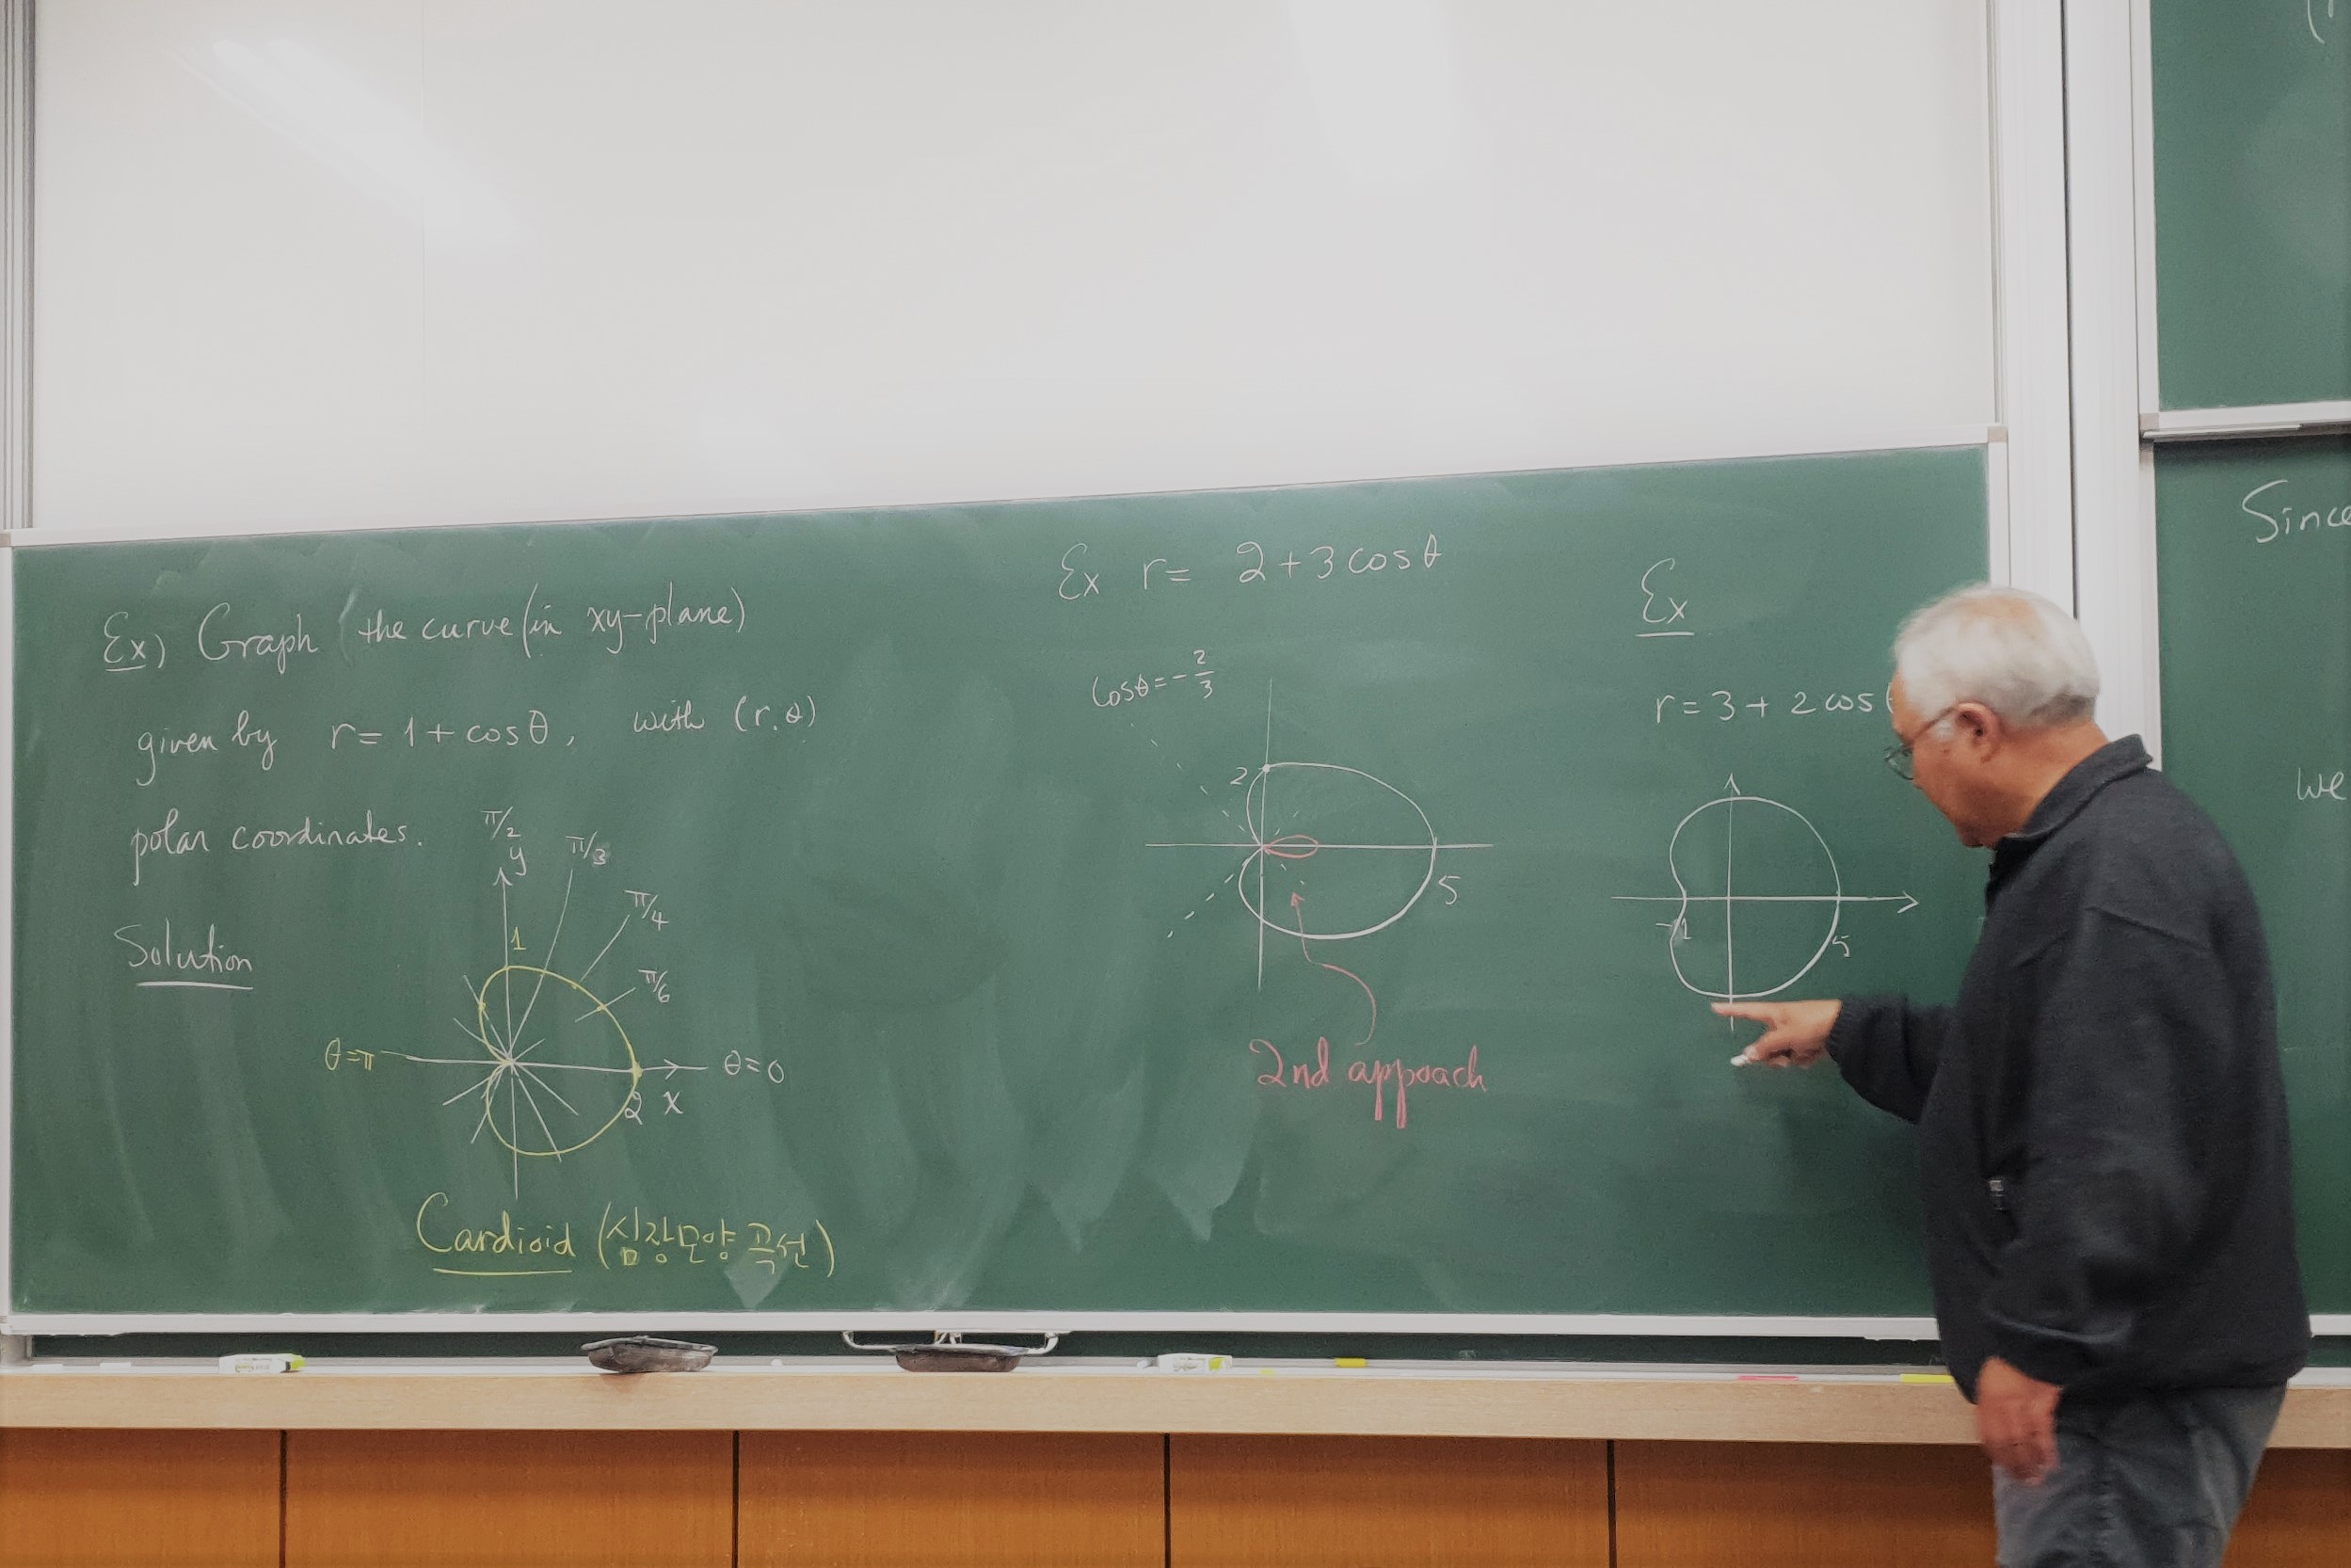 Ex) Graph the curve (in xy-plane)
given by r = 1 + cosθ, with (r.θ)
polar coordinates.
Solution
π/2
y
π/3
π/4
π/6
1
θ=π
θ=0
2
x
Cardioid (심장모양 곡선)
Ex r= 2+3cosθ
cosθ=-2/3
2
5
2nd appoach
Ex
r=3+2cos
-1
5
Since
we